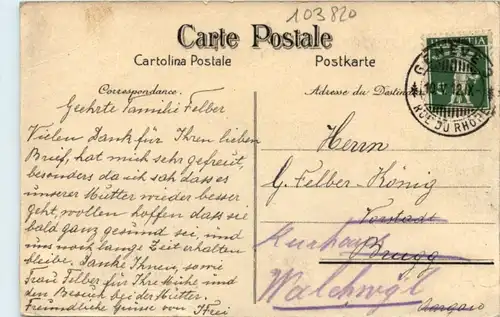 103820
Carte Postale
Cartolina Postale Postkarte
Correspondance. Adresse du Destinataire.
Geehrte Familie Felber
Vielen Dank für Ihren lieben
Brief, hat mich sehr gefreut,
besonders da ich sah dass es
unserer Mutter wieder besser
geht, wollen hoffen dass sie
bald ganz gesund sei und
uns noch lange Zeit erhalten
bleibe. Danke Ihnen, sowie
Frau Felber für Ihre Mühe und
den Besuch bei der Mutter.
Freundliche Grüsse von
GENÈVE
10.V.12.IX
RUE DU RHÔNE
HELVETIA
Herrn
G. Felber-König
Vorstadt
Kurhaus
Brugg
Walchwyl
Aargau